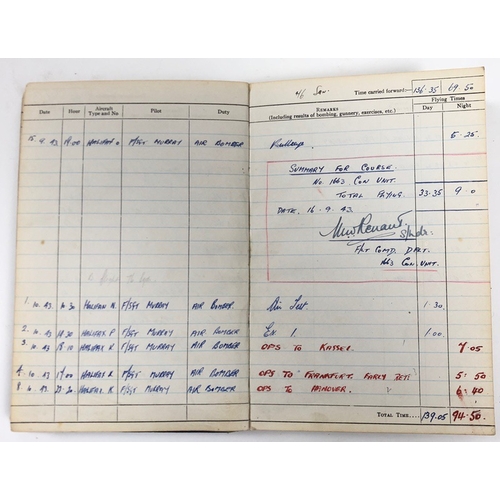 Date Hour Aircraft Type and No Pilot Duty
15. 9. 43 19.00 HALIFAX O F/SGT MURRAY AIR BOMBER
1. 10. 43 10.30 HALIFAX N. F/SGT MURRAY AIR BOMBER.
2. 10. 43 18.30 HALIFAX P. F/SGT MURRAY AIR BOMBER
3. 10. 43 18.10 HALIFAX K F/SGT MURRAY AIR BOMBER
4. 10. 43 17.00 HALIFAX K F/SGT MURRAY AIR BOMBER
8. 10. 43 HALIFAX K F/SGT MURRAY AIR BOMBER
Time carried forward:— 136.35 69.50
REMARKS
(Including results of bombing, gunnery, exercises, etc.)
Flying Times
Day Night
5.25
SUMMARY FOR COURSE.
No. 1663 CON UNIT.
TOTAL FLYING 33.35 9.0
DATE. 16. 9. 43.
S/Ldr.
CON. UNIT.
Air Test 1.30
Ex 1. 1.00
OPS TO KASSEL. 7.05
OPS TO FRANKFURT. EARLY RET. 5.50
OPS TO HANOVER. 6.40
TOTAL TIME.... 139.05 94.50